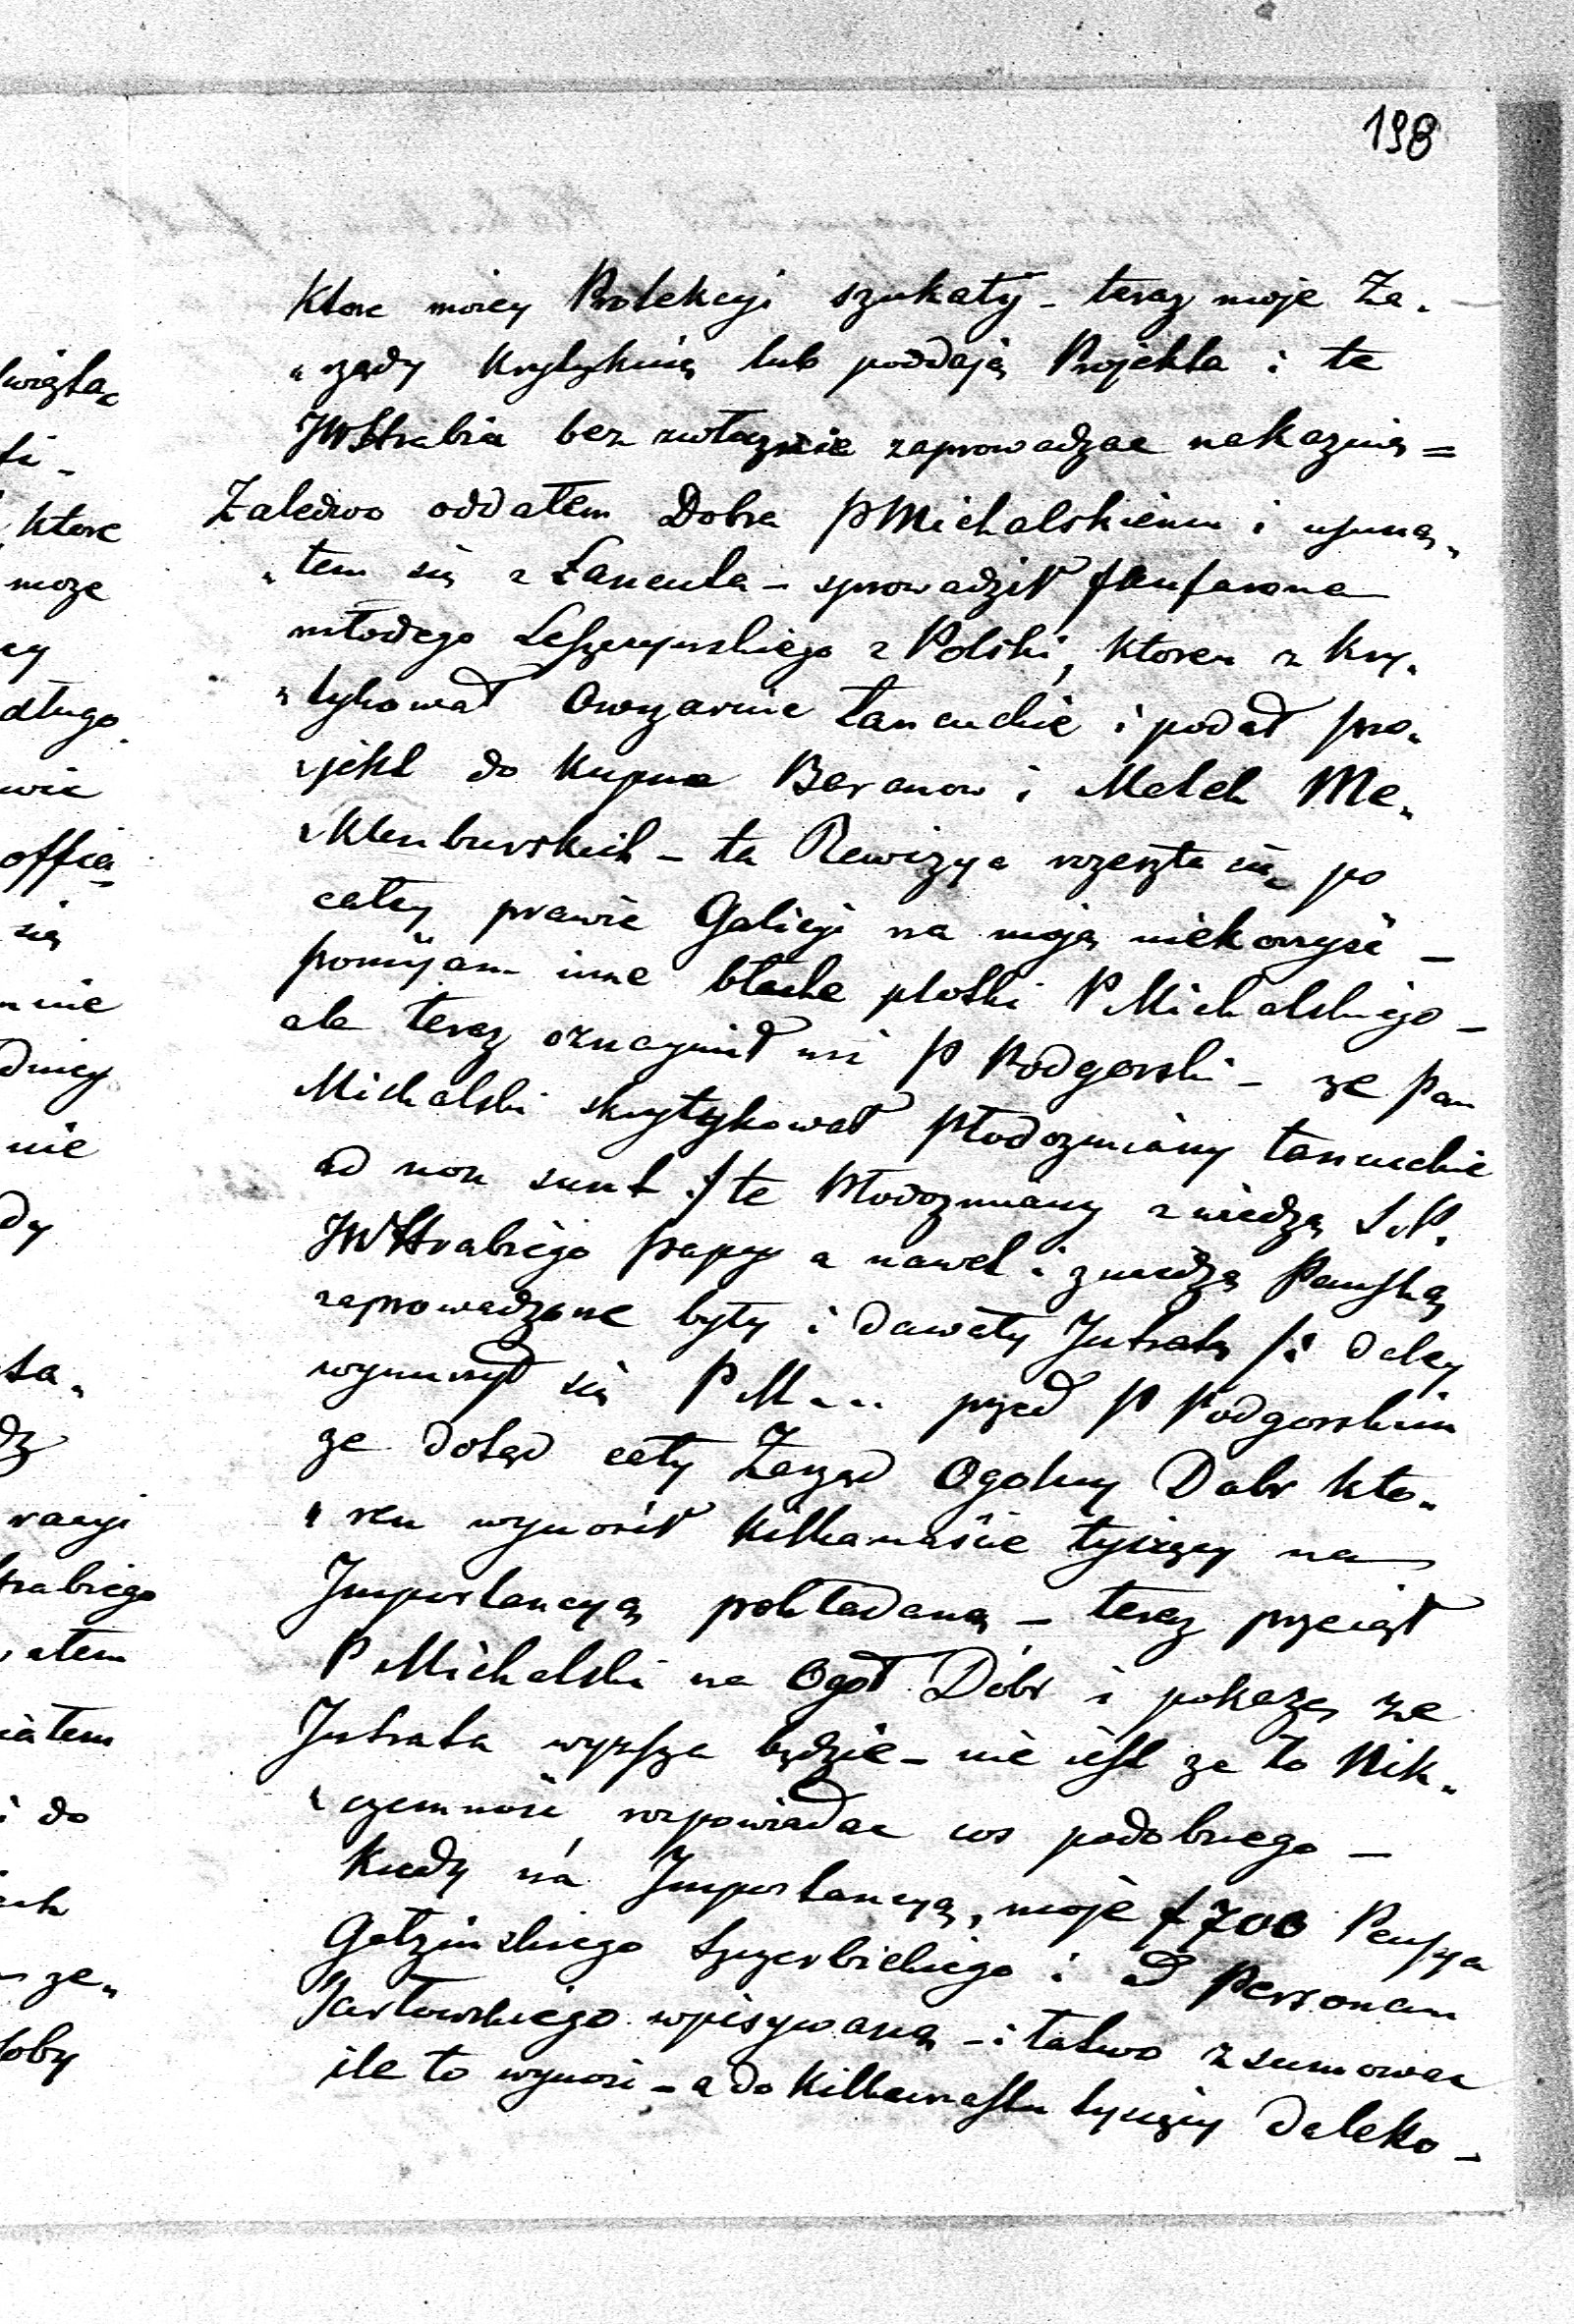 198
Ktore moiey Protekcyi szukały – teraz moje Za„
„rządy krytykuią lub poddają Projekta i te
JWHrabia bezzwłocznie zaprowadzac nakazuią =
Zaledwo oddałem Dobra PMichalskiemu i usuną„
„łem się z Łancuta – sprowadził
młodego Leszczynskiego z Polski, ktoren z kry„
„tykował Owczarnie Łancuckie i podał pro„
„jekt do kupna Baranow i Matek Me„
„klenburskich – ta Rewizya rozeszła się po
całey prawie Galicyi na moją niekorzyść –
pomijam inne błache plotki P Michalskiego –
ale teraz oznaymił mi P Podgorski – ze Pan
Michalski skrytykował Płodozmiany Łancuckie
ad non sunt /: te Płodozmiany z wiedzą S.P.
JWHrabiego Papy a nawet i z wiedzą Panską
zaprowadzone były i dawały Intratę /: daley
wynurzył się P M... przed P Podgorskim
ze dotąd cały Zarząd Ogolny Dobr kto„
„ren wynosił kilkanaście tysięcy na
Importancyą pokładaną – teraz przeciął
P Michalski na Ogoł Dóbr i pokazę ze
Intrata wyzsza będzie – nie iest ze to Nik„
„czemność rozpowiadac cos podobnego –
Kiedy na Importancyą, moje f 700 Pensya
Gołzinskiego Szczerbickiego i D Personam
Jarłowskiego wpisywaną – i łatwo zsumowac
ile to wynosi – a do kilkunastu tysięcy daleko –
władzą
Ktore
moze
długo
wie
się
nie
dy
Hrabiego
i do